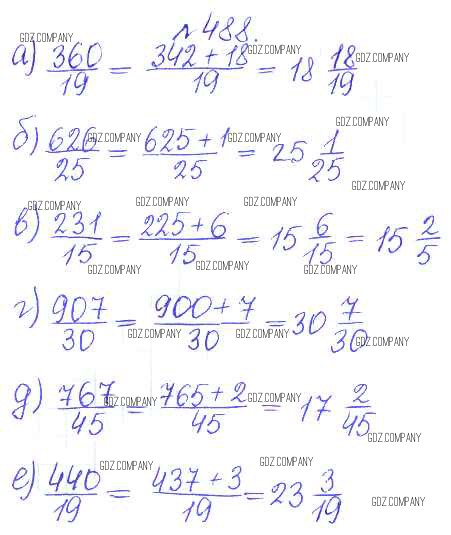 №488.
GDZ.COMPANY
а) 360/19 = (342 + 18)/19 = 18 18/19
GDZ.COMPANY GDZ.COMPANY
GDZ.COMPANY
б) 626/25 = (625 + 1)/25 = 25 1/25
GDZ.COMPANY GDZ.COMPANY
GDZ.COMPANY
GDZ.COMPANY GDZ.COMPANY GDZ.COMPANY
в) 231/15 = (225 + 6)/15 = 15 6/15 = 15 2/5
GDZ.COMPANY GDZ.COMPANY GDZ.COMPANY
г) 907/30 = (900 + 7)/30 = 30 7/30
GDZ.COMPANY GDZ.COMPANY GDZ.COMPANY
д) 767/45 = (765 + 2)/45 = 17 2/45
GDZ.COMPANY GDZ.COMPANY
GDZ.COMPANY
GDZ.COMPANY GDZ.COMPANY
е) 440/19 = (437 + 3)/19 = 23 3/19
GDZ.COMPANY